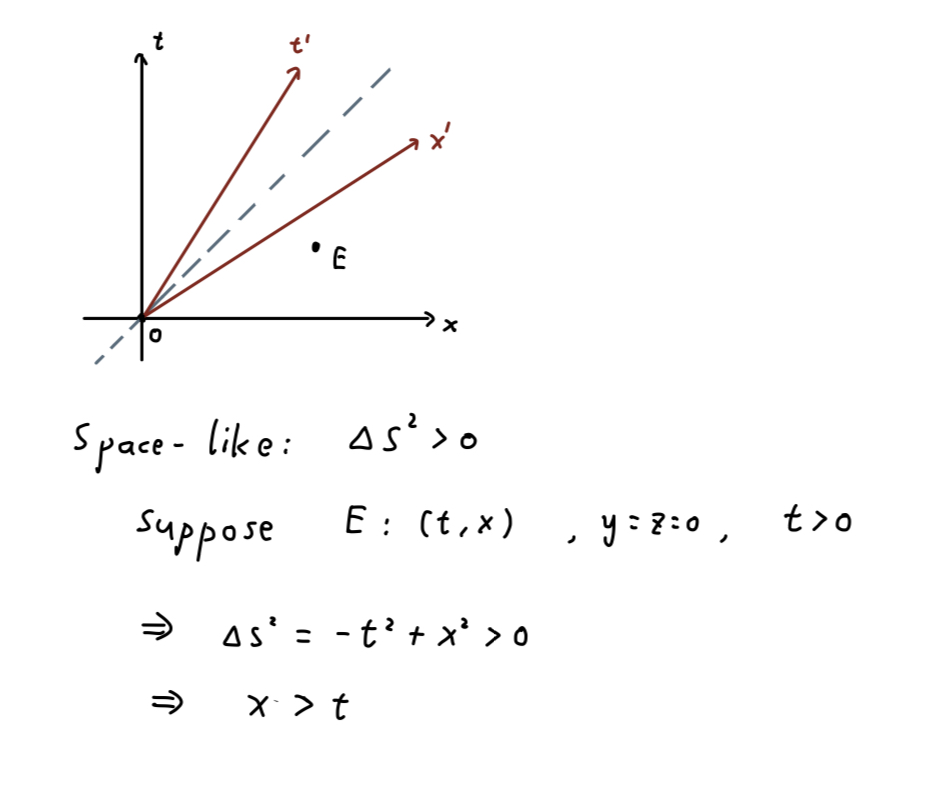 t
t'
x'
E
x
0
Space-like: Δs² > 0
Suppose E: (t, x) , y=z=0, t>0
⇒ Δs² = -t² + x² > 0
⇒ x > t